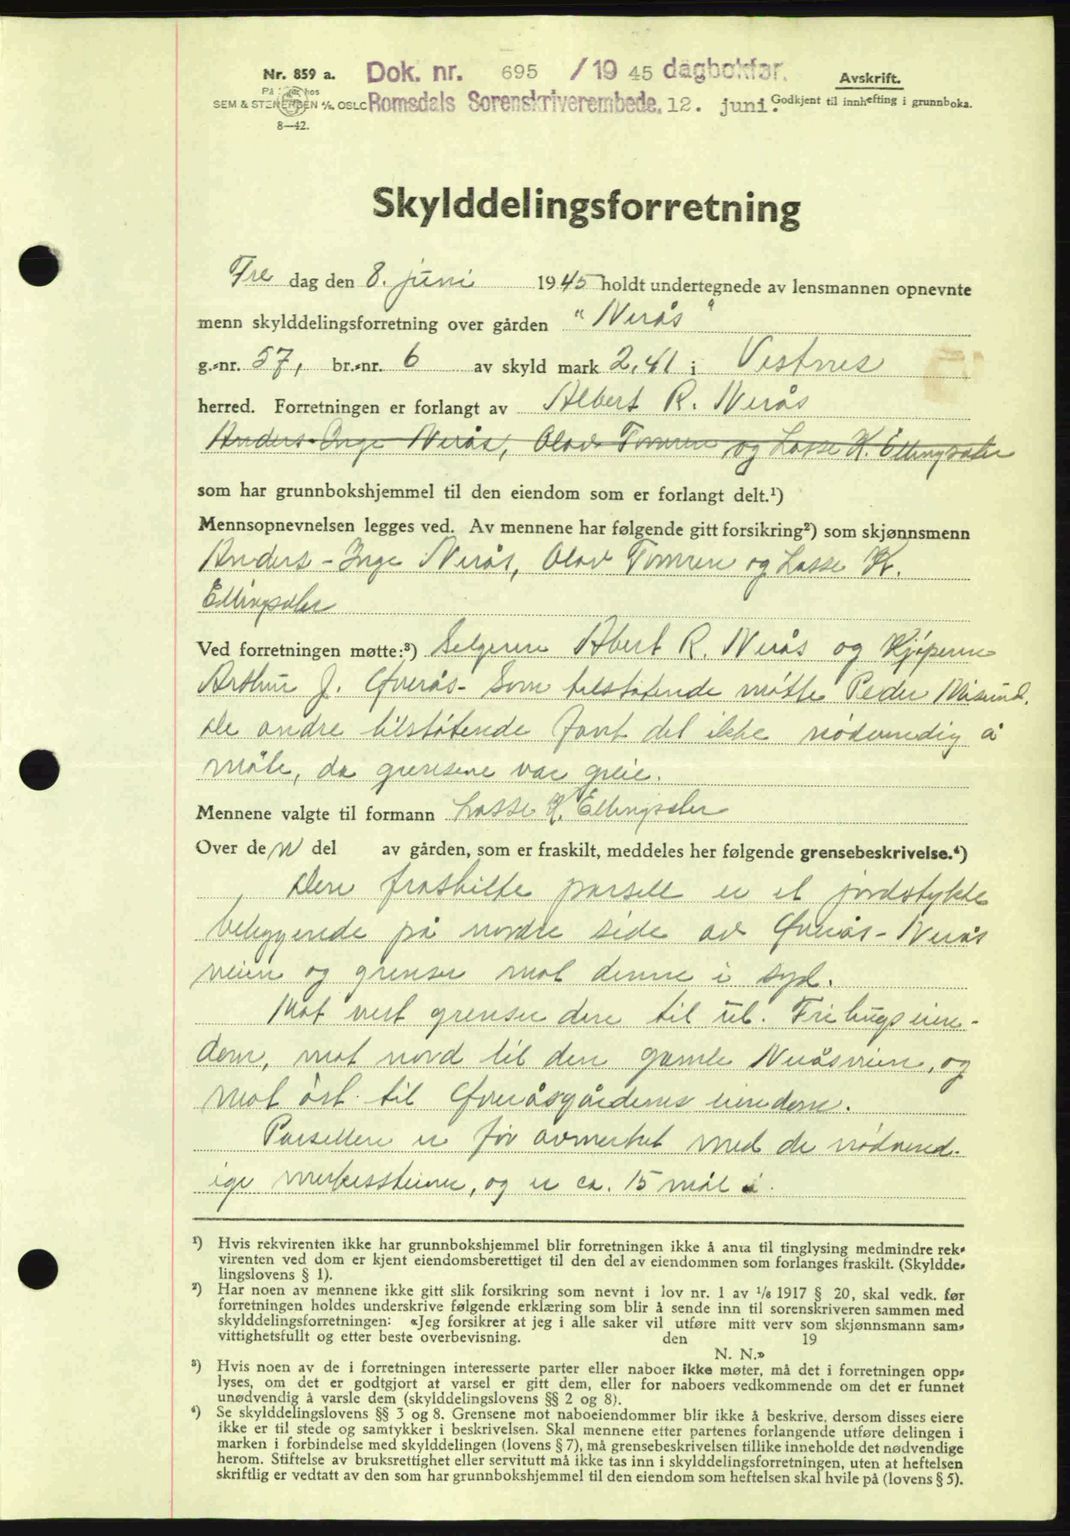 Nr. 859 a.
Dok. nr. 695 / 19 45 dagbokfør.
Avskrift.
På hos
SEM & STENERSEN A/S, OSLO
Romsdals Sorenskriverembede, 12. juni.
Godkjent til innhefting i grunnboka.
8—42.
Skylddelingsforretning
Fre dag den 8. juni 1945 holdt undertegnede av lensmannen opnevnte
menn skylddelingsforretning over gården "Nerås"
g.-nr. 57, br.-nr. 6 av skyld mark 2,41 i Vestnes
herred. Forretningen er forlangt av Albert R. Nerås
Anders-Inge Nerås, Olav Tomren og Lasse K. Ellingsæter
som har grunnbokshjemmel til den eiendom som er forlangt delt.¹)
Mennsopnevnelsen legges ved. Av mennene har følgende gitt forsikring²) som skjønnsmenn
Anders-Inge Nerås, Olav Tomren og Lasse K.
Ellingsæter
Ved forretningen møtte:³) Selgeren Albert R. Nerås og kjøperen
Arthur J. Øverås- Som tilstøtende møtte Peder Misund,
de andre tilstøtende fant det ikke nødvendig å
møte, da grensene var greie.
Mennene valgte til formann Lasse K. Ellingsæter
Over den del av gården, som er fraskilt, meddeles her følgende grensebeskrivelse.⁴)
Den fraskilte parsell er et jordstykke
beliggende på nordre side av Øverås-Nerås
veien og grenser mot denne i syd.
Mot vest grenser den til ul. Fribugs eien-
dom, mot nord til den gamle Neråsveien, og
mot öst til Øveråsgårdenes eiendom.
Parsellen er før avmerket med de nødvend-
ige merkessteiner, og er ca. 15 mål
¹) Hvis rekvirenten ikke har grunnbokshjemmel blir forretningen ikke å anta til tinglysing medmindre rek-
virenten ved dom er kjent eiendomsberettiget til den del av eiendommen som forlanges fraskilt. (Skyldde-
lingslovens § 1).
²) Har noen av mennene ikke gitt slik forsikring som nevnt i lov nr. 1 av 1/6 1917 § 20, skal vedk. før
forretningen holdes underskrive følgende erklæring som blir å sende inn til sorenskriveren sammen med
skylddelingsforretningen: «Jeg forsikrer at jeg i alle saker vil utføre mitt verv som skjønnsmann sam-
vittighetsfullt og etter beste overbevisning. den 19
N. N.»
³) Hvis noen av de i forretningen interesserte parter eller naboer ikke møter, må det i forretningen opp-
lyses, om det er godtgjort at varsel er gitt dem, eller for naboers vedkommende om det er funnet
unødvendig å varsle dem (skylddelingslovens §§ 2 og 8).
⁴) Se skylddelingslovens §§ 3 og 8. Grensene mot naboeiendommer blir ikke å beskrive, dersom disses eiere
ikke er til stede og samtykker i beskrivelsen. Skal mennene etter partenes forlangende utføre delingen i
marken i forbindelse med skylddelingen (lovens § 7), må grensebeskrivelsen tillike inneholde det nødvendige
herom. Stiftelse av bruksrettighet eller servitutt må ikke tas inn i skylddelingsforretningen, uten at heftelsen
skriftlig er vedtatt av den som har grunnbokshjemmel til den eiendom som heftelsen skal hvile på (lovens § 5).